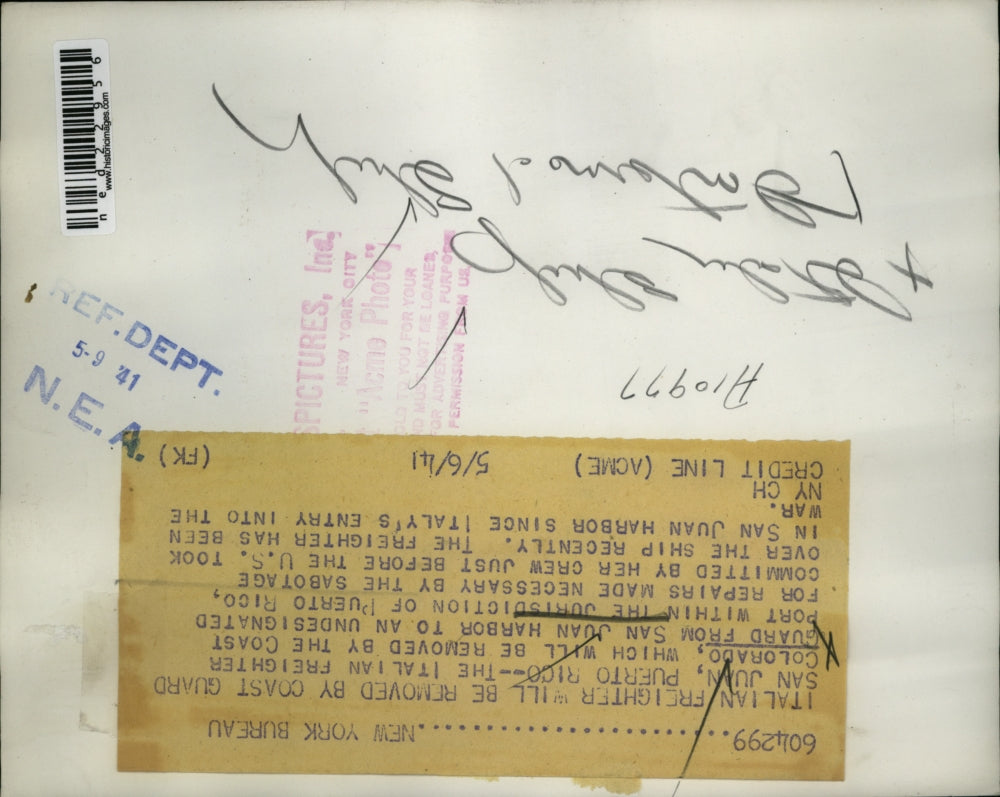 604299........................NEW YORK BUREAU
ITALIAN FREIGHTER WILL BE REMOVED BY COAST GUARD
SAN JUAN, PUERTO RICO--THE ITALIAN FREIGHTER
COLORADO, WHICH WILL BE REMOVED BY THE COAST
GUARD FROM SAN JUAN HARBOR TO AN UNDESIGNATED
PORT WITHIN THE JURISDICTION OF PUERTO RICO,
FOR REPAIRS MADE NECESSARY BY THE SABOTAGE
COMMITTED BY HER CREW JUST BEFORE THE U.S. TOOK
OVER THE SHIP RECENTLY. THE FREIGHTER HAS BEEN
IN SAN JUAN HARBOR SINCE ITALY'S ENTRY INTO THE
WAR.
NY CH
CREDIT LINE (ACME) 5/6/41 (FK)
A10977
Italy Ship
REF. DEPT.
5-9 '41
N.E.A.
SPICTURES, Inc.
NEW YORK CITY
"Acme Photo"
TO YOU FOR YOUR
MUST NOT BE LOANED,
FOR ADVERTISING PURPOSE
PERMISSION FROM US.
ned22956
www.historicimages.com